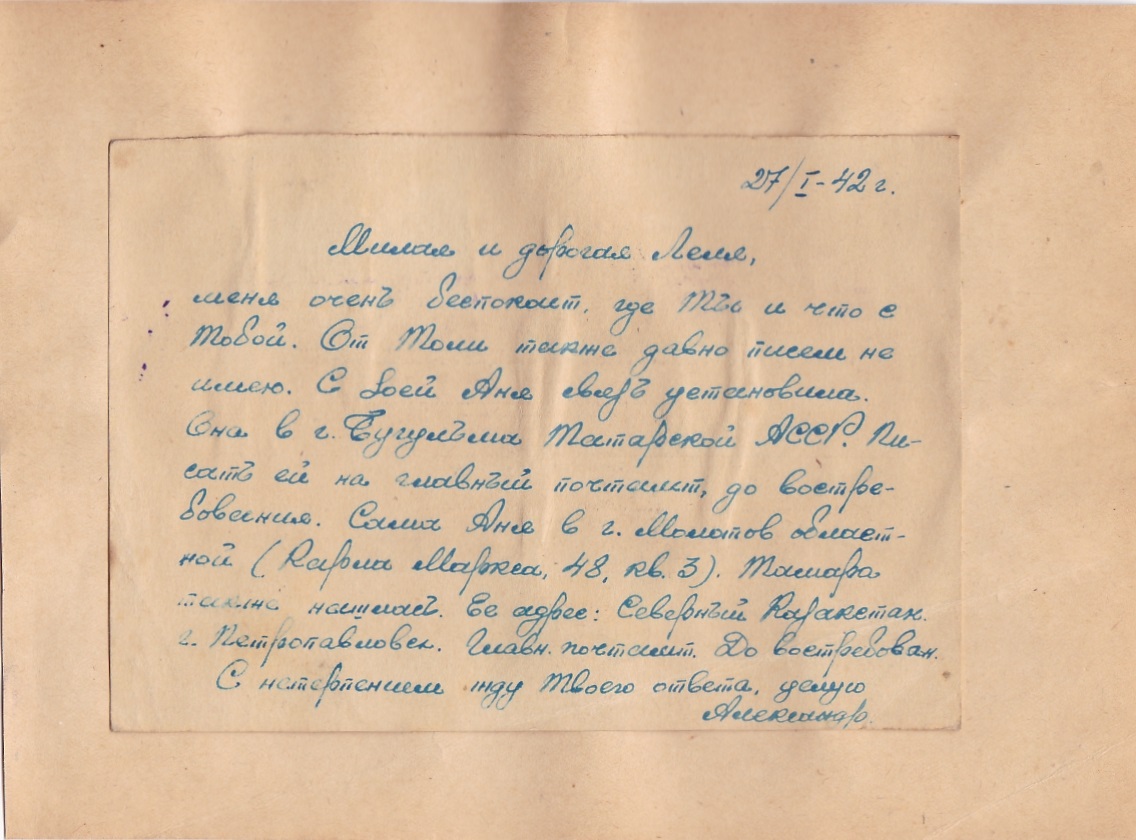 27/I-42 г.
Милая и дорогая Леля,
меня очень беспокоит, где ты и что с
тобой. От Толи также давно писем не
имею. С Зоей Аня связь установила.
Она в г. Бугульма Татарской АССР. Пи-
сать ей на главный почтамт, до востре-
бования. Сама Аня в г. Молотов област-
ной (Карла Маркса, 48, кв. 3). Тамара
также нашлась. Ее адрес: Северный Казакстан.
г. Петропавловск. Главн. почтамт. До востребован.
С нетерпением жду твоего ответа, целую
Александр.